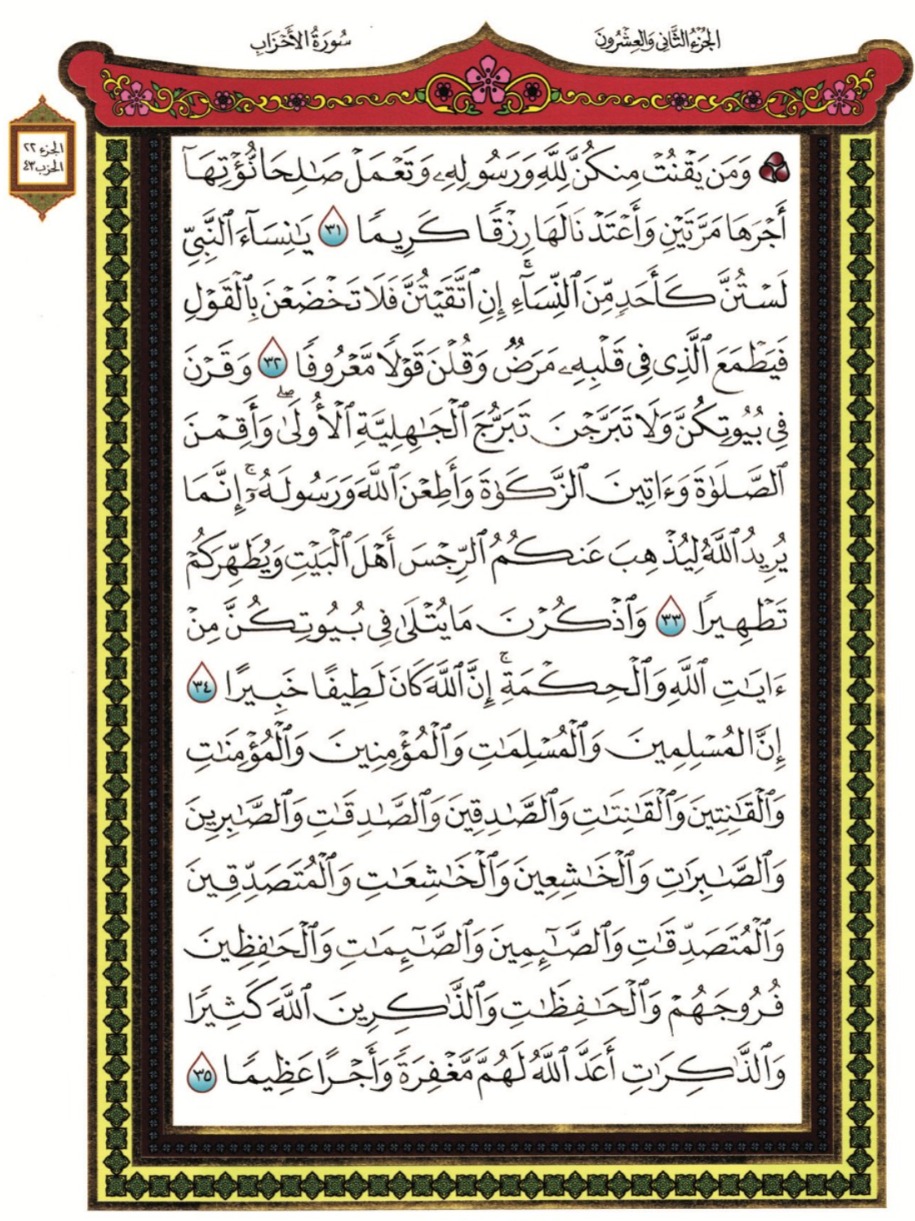 الجزء الثاني والعشرون
سُورَةُ الأَحْزَابِ
الجزء ٢٢
الحزب ٤٣
وَمَن يَقْنُتْ مِنكُنَّ لِلَّهِ وَرَسُولِهِۦ وَتَعْمَلْ صَٰلِحًا نُّؤْتِهَآ
أَجْرَهَا مَرَّتَيْنِ وَأَعْتَدْنَا لَهَا رِزْقًا كَرِيمًا ٣١ يَٰنِسَآءَ ٱلنَّبِيِّ
لَسْتُنَّ كَأَحَدٍ مِّنَ ٱلنِّسَآءِ ۚ إِنِ ٱتَّقَيْتُنَّ فَلَا تَخْضَعْنَ بِٱلْقَوْلِ
فَيَطْمَعَ ٱلَّذِى فِى قَلْبِهِۦ مَرَضٌ وَقُلْنَ قَوْلًا مَّعْرُوفًا ٣٢ وَقَرْنَ
فِى بُيُوتِكُنَّ وَلَا تَبَرَّجْنَ تَبَرُّجَ ٱلْجَٰهِلِيَّةِ ٱلْأُولَىٰ ۖ وَأَقِمْنَ
ٱلصَّلَوٰةَ وَءَاتِينَ ٱلزَّكَوٰةَ وَأَطِعْنَ ٱللَّهَ وَرَسُولَهُۥٓ ۚ إِنَّمَا
يُرِيدُ ٱللَّهُ لِيُذْهِبَ عَنكُمُ ٱلرِّجْسَ أَهْلَ ٱلْبَيْتِ وَيُطَهِّرَكُمْ
تَطْهِيرًا ٣٣ وَٱذْكُرْنَ مَا يُتْلَىٰ فِى بُيُوتِكُنَّ مِنْ
ءَايَٰتِ ٱللَّهِ وَٱلْحِكْمَةِ ۚ إِنَّ ٱللَّهَ كَانَ لَطِيفًا خَبِيرًا ٣٤
إِنَّ ٱلْمُسْلِمِينَ وَٱلْمُسْلِمَٰتِ وَٱلْمُؤْمِنِينَ وَٱلْمُؤْمِنَٰتِ
وَٱلْقَٰنِتِينَ وَٱلْقَٰنِتَٰتِ وَٱلصَّٰدِقِينَ وَٱلصَّٰدِقَٰتِ وَٱلصَّٰبِرِينَ
وَٱلصَّٰبِرَٰتِ وَٱلْخَٰشِعِينَ وَٱلْخَٰشِعَٰتِ وَٱلْمُتَصَدِّقِينَ
وَٱلْمُتَصَدِّقَٰتِ وَٱلصَّٰٓئِمِينَ وَٱلصَّٰٓئِمَٰتِ وَٱلْحَٰفِظِينَ
فُرُوجَهُمْ وَٱلْحَٰفِظَٰتِ وَٱلذَّٰكِرِينَ ٱللَّهَ كَثِيرًا
وَٱلذَّٰكِرَٰتِ أَعَدَّ ٱللَّهُ لَهُم مَّغْفِرَةً وَأَجْرًا عَظِيمًا ٣٥